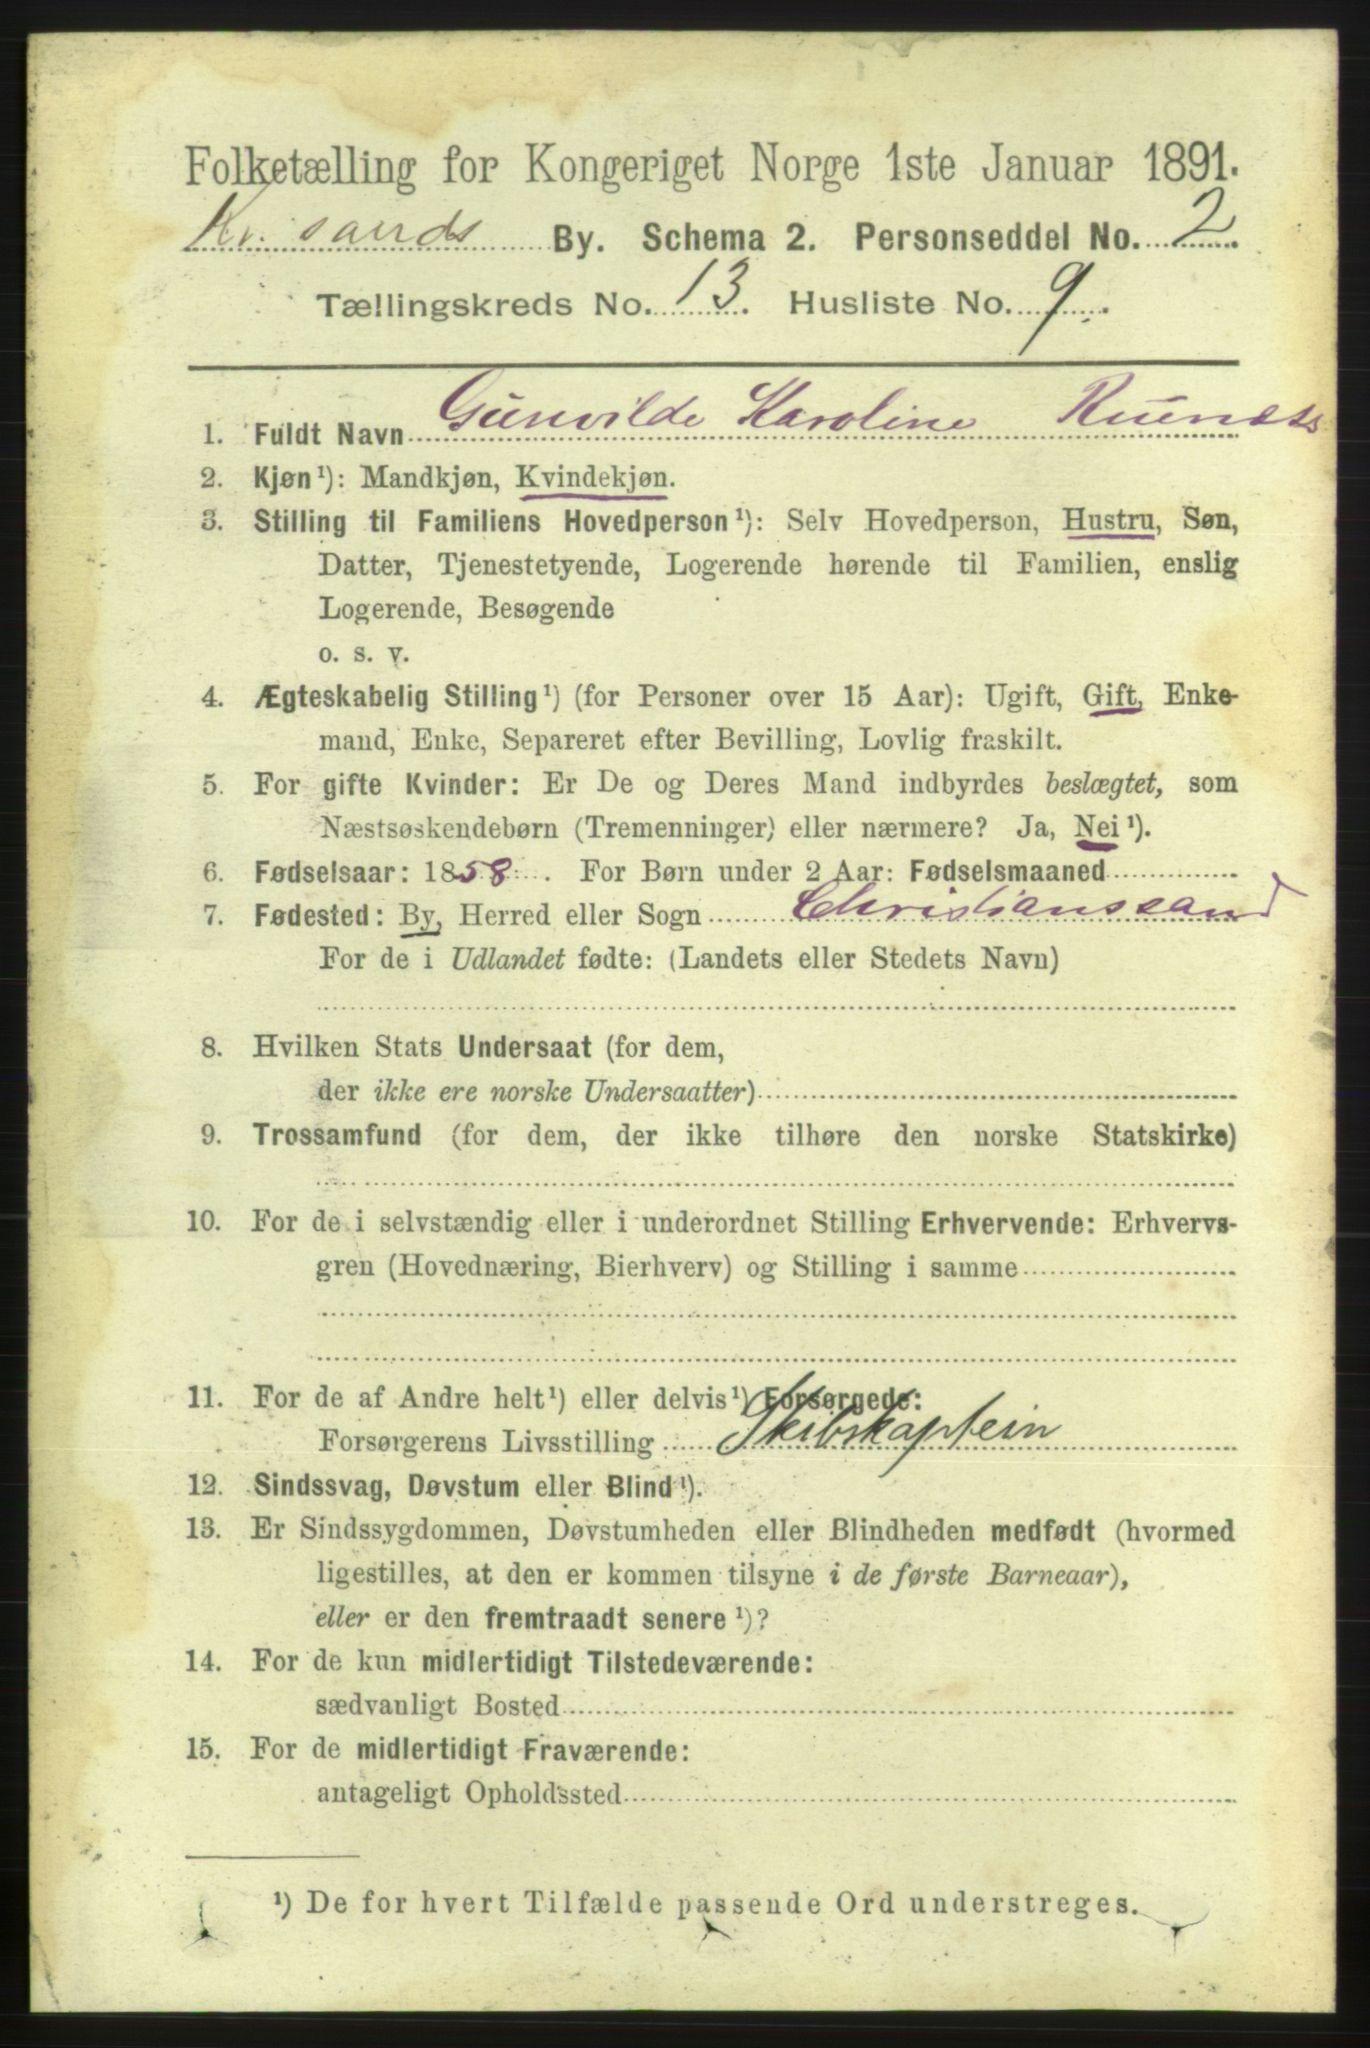 Folketælling for Kongeriget Norge 1ste Januar 1891.
Kr. sands By. Schema 2. Personseddel No. 2.
Tællingskreds No. 13. Husliste No. 9.
1. Fuldt Navn Gunvilde Karoline
2. Kjøn¹): Mandkjøn, Kvindekjøn.
3. Stilling til Familiens Hovedperson¹): Selv Hovedperson, Hustru, Søn,
Datter, Tjenestetyende, Logerende hørende til Familien, enslig
Logerende, Besøgende
o. s. v.
4. Ægteskabelig Stilling¹) (for Personer over 15 Aar): Ugift, Gift, Enke-
mand, Enke, Separeret efter Bevilling, Lovlig fraskilt.
5. For gifte Kvinder: Er De og Deres Mand indbyrdes beslægtet, som
Næstsøskendebørn (Tremenninger) eller nærmere? Ja, Nei¹).
6. Fødselsaar: 1858. For Børn under 2 Aar: Fødselsmaaned
7. Fødested: By, Herred eller Sogn Christianssand
For de i Udlandet fødte: (Landets eller Stedets Navn)
8. Hvilken Stats Undersaat (for dem,
der ikke ere norske Undersaatter)
9. Trossamfund (for dem, der ikke tilhøre den norske Statskirke)
10. For de i selvstændig eller i underordnet Stilling Erhvervende: Erhvervs-
gren (Hovednæring, Bierhverv) og Stilling i samme
11. For de af Andre helt¹) eller delvis¹) Forsørgede:
Forsørgerens Livsstilling Skibskaptein
12. Sindssvag, Døvstum eller Blind¹).
13. Er Sindssygdommen, Døvstumheden eller Blindheden medfødt (hvormed
ligestilles, at den er kommen tilsyne i de første Barneaar),
eller er den fremtraadt senere¹)?
14. For de kun midlertidigt Tilstedeværende:
sædvanligt Bosted
15. For de midlertidigt Fraværende:
antageligt Opholdssted
¹) De for hvert Tilfælde passende Ord understreges.